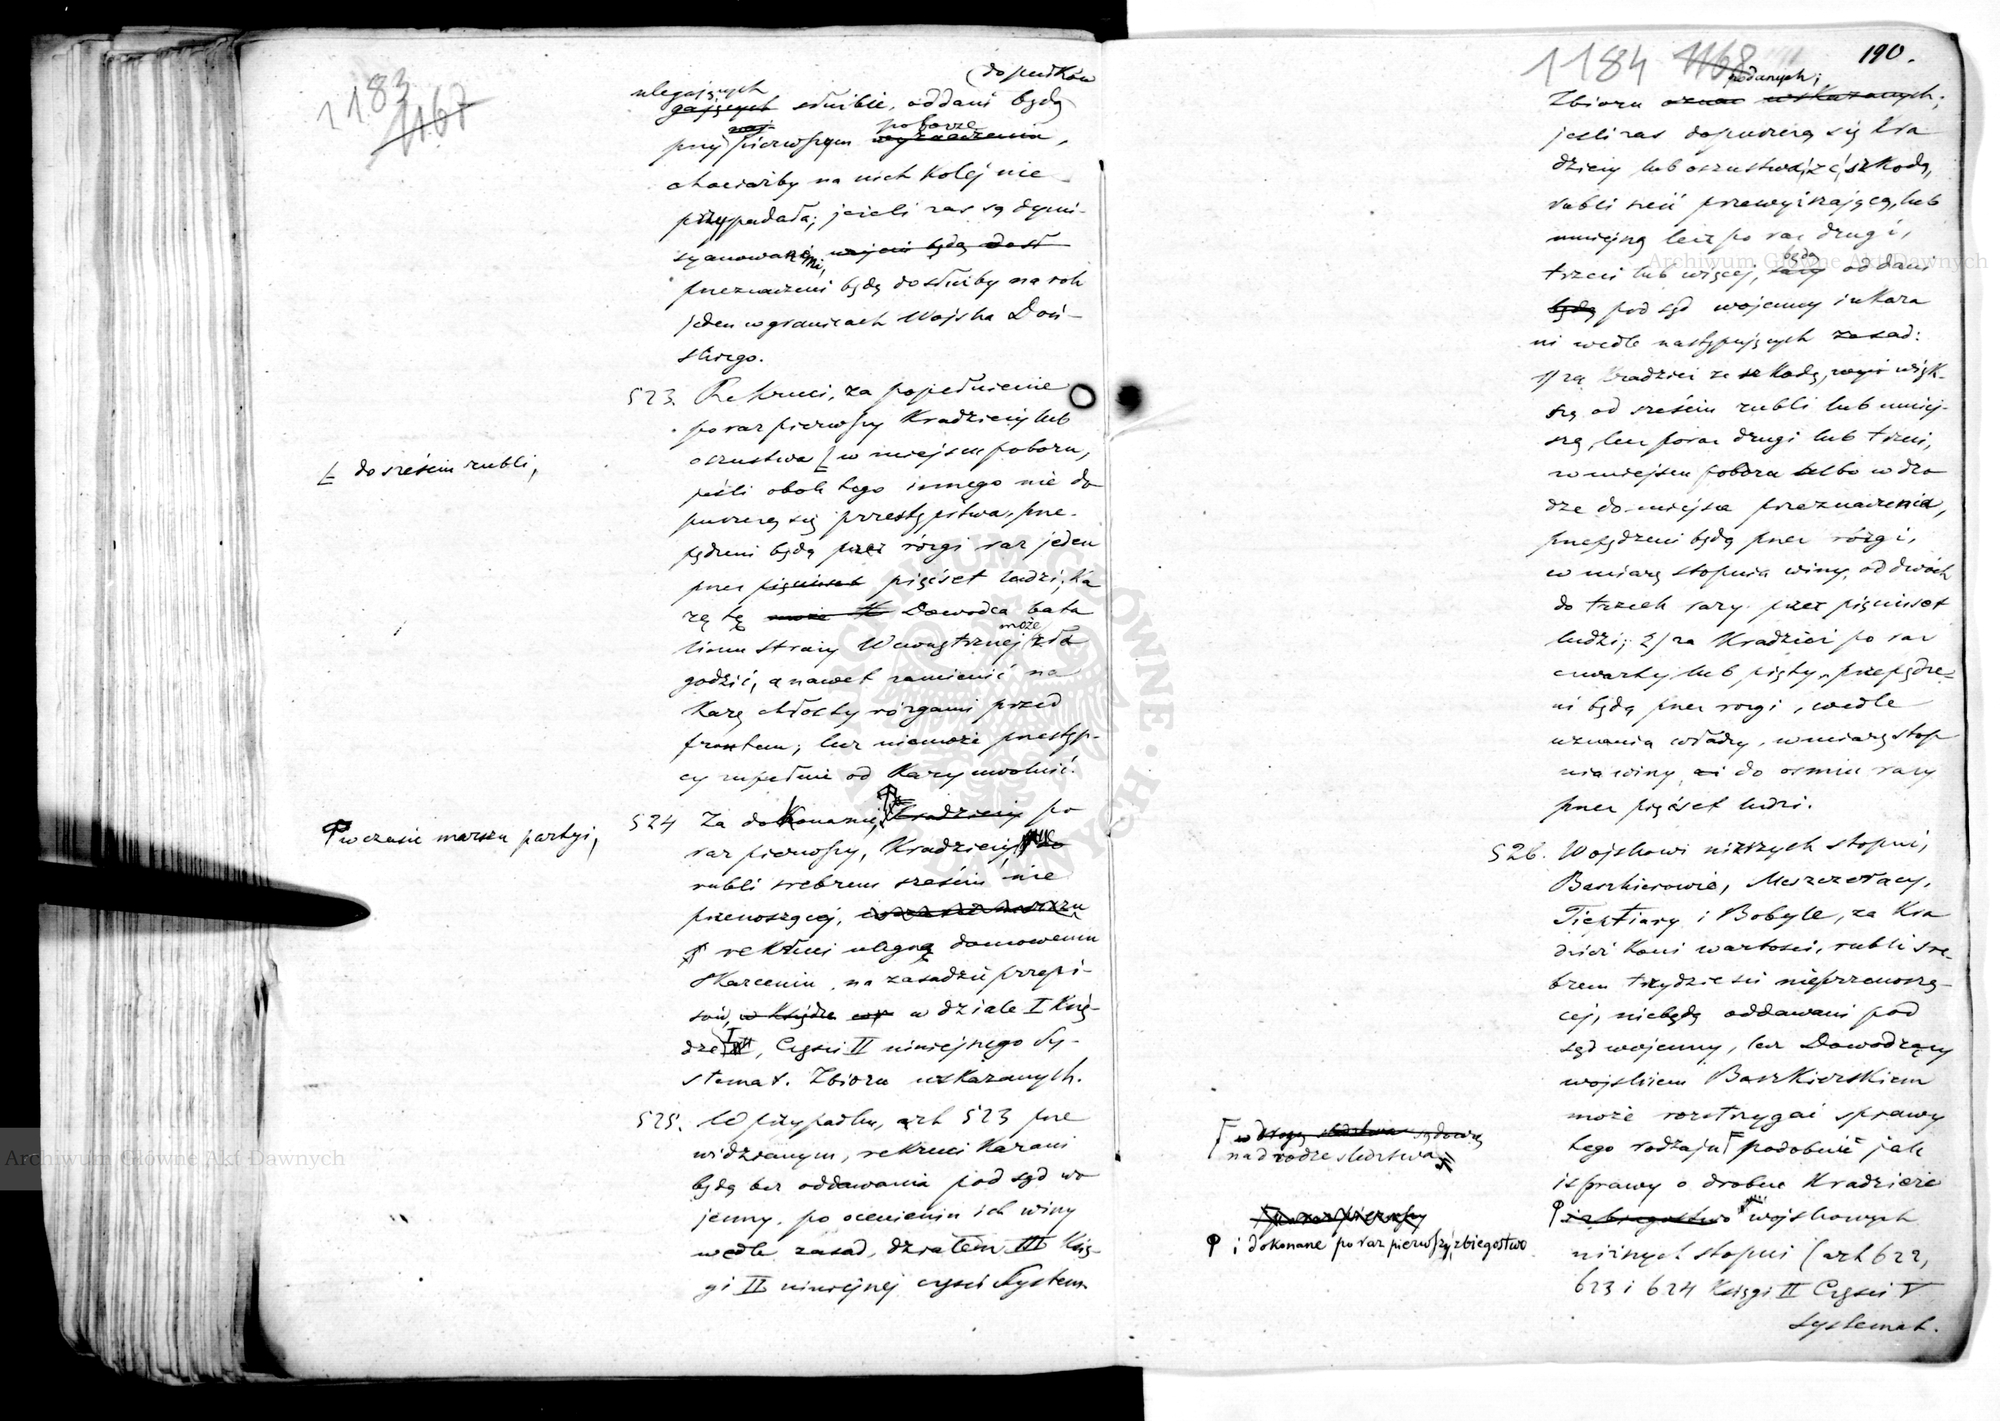 1183
1167
(do pułków
ulegających
gających służbie, oddani będą
przy pierwszym poborze wyznaczeniu,
chociażby na nich kolej nie
przypadała; jeżeli zaś są dymi-
syanowanemi, będą
przeznaczeni będą do służby na rok
jeden w granicach Wojska Doń-
skiego.
523. Rekruci, za popełnienie
po raz pierwszy kradzieży lub
oszustwa [ w miejscu poboru,
[ do sześciu rubli,
jeśli obok tego innego nie do
puszczą się przestępstwa, prze-
pędzeni będą przez rózgi raz jeden
przez pięćset ludzi; ka
rę tę może Dowódca bata
lionu straży Wewnętrznej może zła
godzić, a nawet zamienić na
karę chłosty rózgami przed
frontem; lecz niemoże przestęp-
cy zupełnie od kary uwolnić.
524 Za dokonanie, kradzieży po
w czasie marszu partyi,
raz pierwszy, kradzieży,
rubli srebrem sześciu nie
przenoszącej,
rekruci ulegną domowemu
skarceniu, na zasadzie przepi-
sów, w dziale I Księ-
dze I, Części II niniejszego Sy-
stemat. Zbioru wskazanych.
525. W przypadku, art 523 prze
widzianym, rekruci karani
będą bez oddawania pod sąd wo
jenny, po ocenieniu ich winy
wedle zasad, działem III Księ-
gi II niniejszej części System.
1184 1168 190.
podanych;
Zbioru wskazanych;
jeśli zaś dopuszczą się kra
dzieży lub oszustwa, ze szkodą,
rubli sześć przewyższającą, lub
mniejszą lecz po raz drugi,
trzeci lub więcej, będą oddani
będą pod sąd wojenny i ukara
ni wedle następujących zasad:
1) za kradzież ze szkodą, więk-
szą od sześciu rubli lub mniej-
szą, lecz po raz drugi lub trzeci,
w miejscu poboru albo w dro
dze do miejsca przeznaczenia,
przepędzeni będą przez rózgi,
w miarę stopnia winy, od dwóch
do trzech razy przez pięciuset
ludzi; 2) za kradzież po raz
czwarty lub piąty, przepędze-
ni będą przez rózgi, wedle
uznania władzy, w miarę stop
nia winy do ośmiu razy
przez pięćset ludzi.
526. Wojskowi niższych stopni,
Baszkirowie, Meszczeracy,
Tieptiary i Bobyle, za kra
dzież koni wartości, rubli sre-
brem trzydzieści nieprzenoszą-
cej, niebędą oddawani pod
sąd wojenny, lecz Dowodzący
wojskiem Baszkirskiem
może rozstrzygać sprawy
tego rodzaju podobnież jak
w drogę śledztwa sądową
na drodze śledztwa
i sprawy o drobne kradzieże
i zbiegostwo wojskowych
po raz pierwszy
i dokonane po raz pierwszy, zbiegostwo
niższych stopni (art 622,
623 i 624 Księgi II Części V
Systemat.
Archiwum Główne Akt Dawnych
Archiwum Główne Akt Dawnych